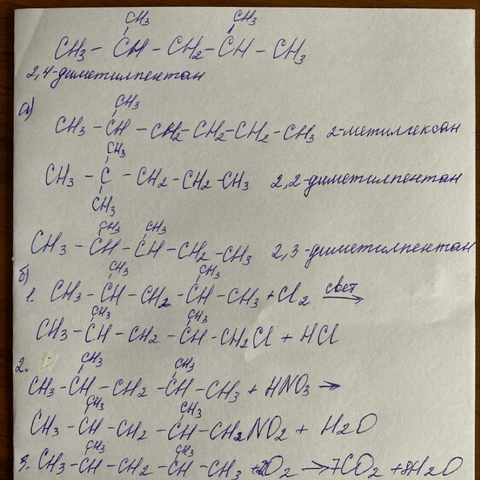 CH₃ CH₃
CH₃ – CH – CH₂ – CH – CH₃
2,4-диметилпентан
а)
CH₃
CH₃ – CH – CH₂ – CH₂ – CH₂ – CH₃ 2-метилгексан
CH₃
CH₃ – C – CH₂ – CH₂ – CH₃ 2,2-диметилпентан
CH₃
CH₃ CH₃
CH₃ – CH – CH – CH₂ – CH₃ 2,3-диметилпентан
б)
CH₃ CH₃
1. CH₃ – CH – CH₂ – CH – CH₃ + Cl₂ свет →
CH₃ CH₃
CH₃ – CH – CH₂ – CH – CH₂Cl + HCl
2.
CH₃ CH₃
CH₃ – CH – CH₂ – CH – CH₃ + HNO₃ →
CH₃ CH₃
CH₃ – CH – CH₂ – CH – CH₂NO₂ + H₂O
CH₃ CH₃
3. CH₃ – CH – CH₂ – CH – CH₃ + O₂ → 7CO₂ + 8H₂O